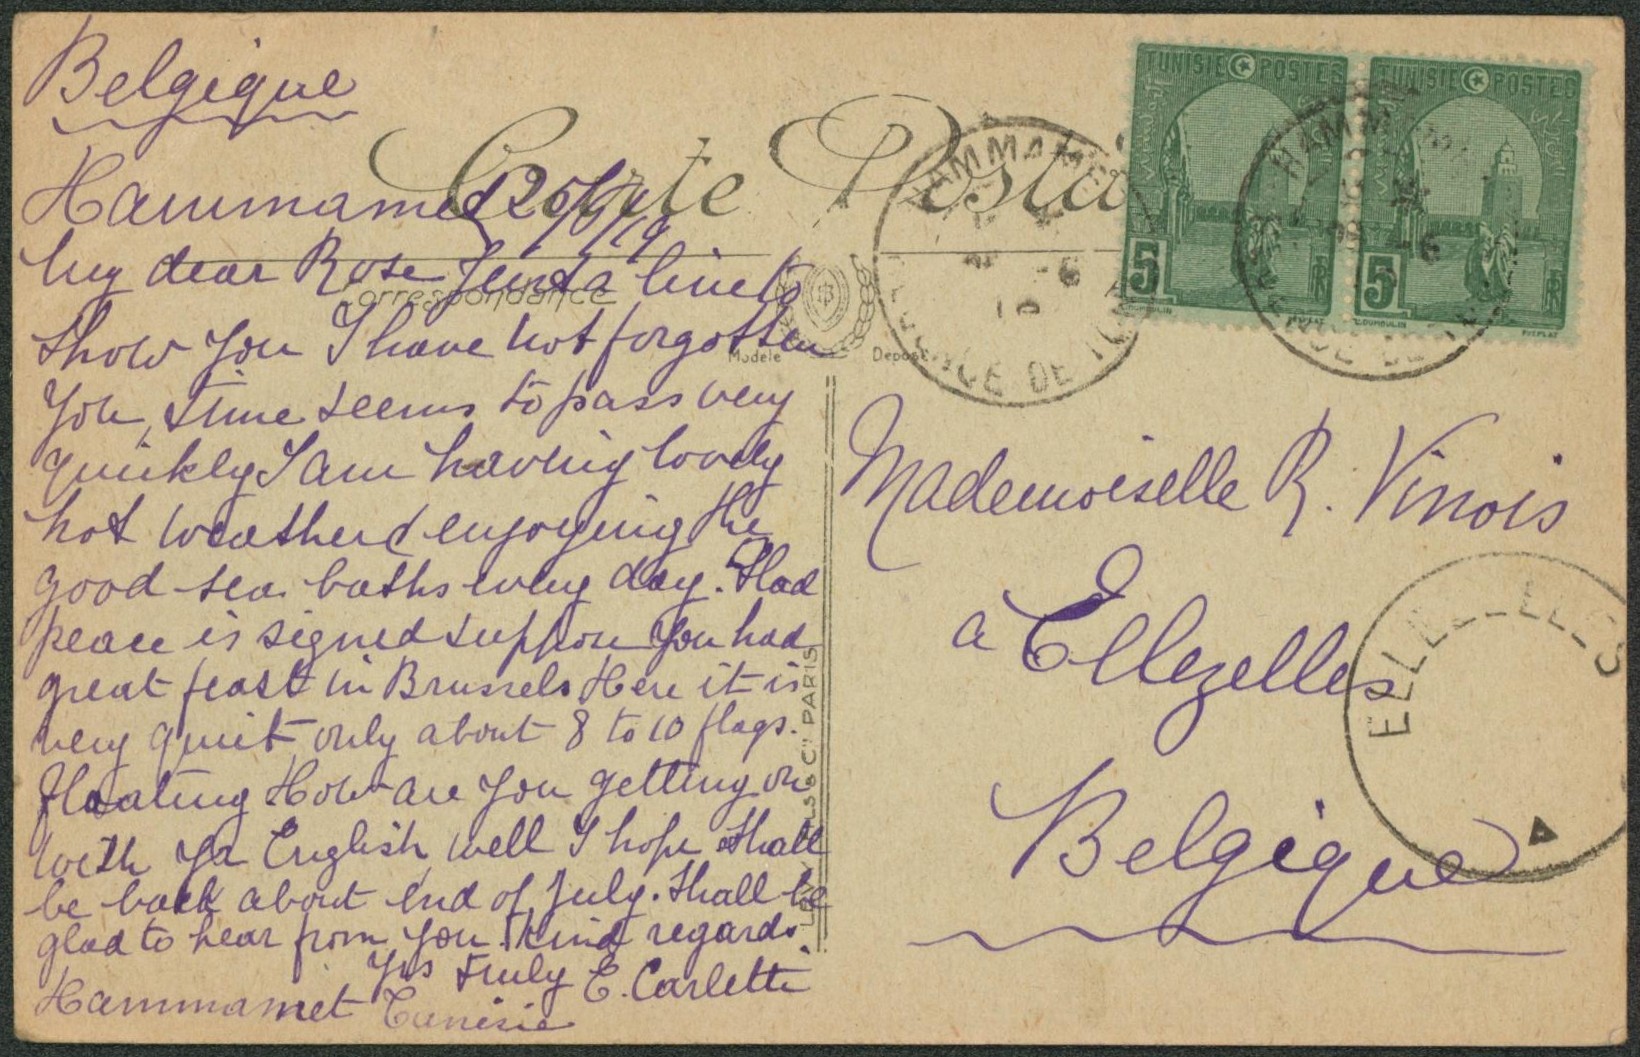 Belgique
Carte Postale
Hammamed 25/6/19
Correspondance
My dear Rose Just a line to
show you I have not forgotten
you, time seems to pass very
quickly I am having lovely
hot weather & enjoying the
good sea baths every day. Glad
peace is signed suppose you had
great feast in Brussels Here it is
very quiet only about 8 to 10 flags.
floating How are you getting on
with yr English, well I hope shall
be back about end of July. Shall be
glad to hear from you. Kind regards.
Yrs truly E. Carletti
Hammamet Tunisie
Modèle Déposé
PARIS
TUNISIE POSTES
5
RF
TUNISIE POSTES
5
RF
HAMMAMET
HAMMAMET
Mademoiselle R. Vinois
a Ellezelles
Belgique
ELLEZELLES